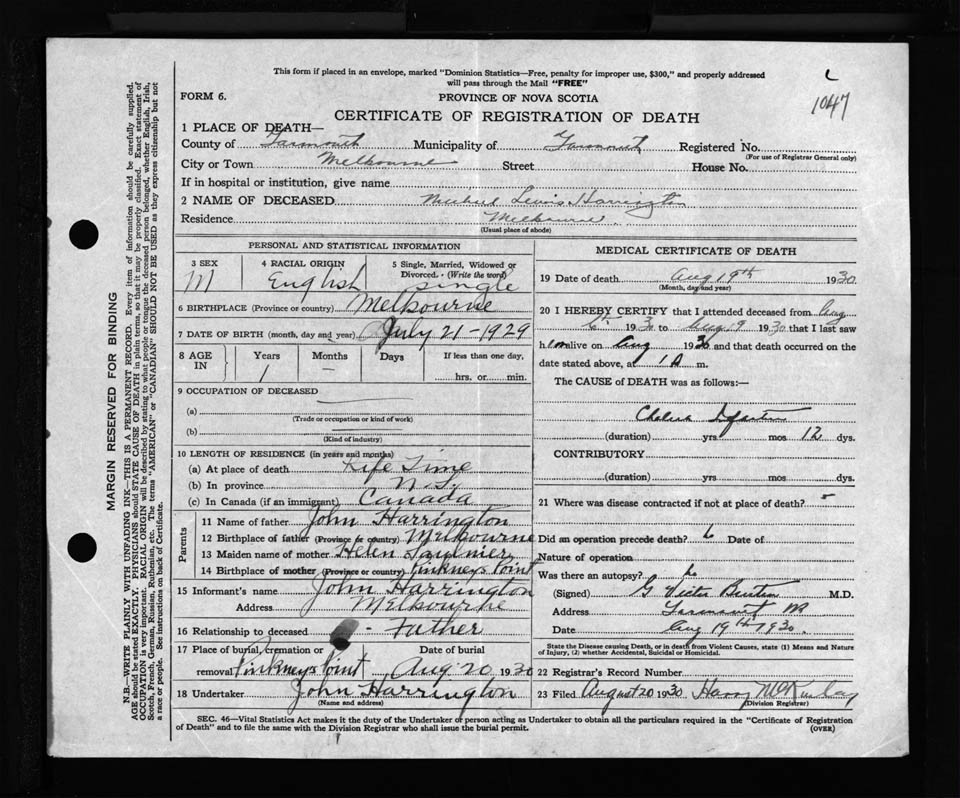 This form if placed in an envelope, marked "Dominion Statistics—Free, penalty for improper use, $300," and properly addressed
will pass through the Mail "FREE"
1047
FORM 6.
PROVINCE OF NOVA SCOTIA
CERTIFICATE OF REGISTRATION OF DEATH
1 PLACE OF DEATH—
County of Yarmouth Municipality of Yarmouth Registered No.
(For use of Registrar General only)
City or Town Melbourne Street House No.
If in hospital or institution, give name
2 NAME OF DECEASED Lewis Harrington
Residence Melbourne
(Usual place of abode)
PERSONAL AND STATISTICAL INFORMATION
3 SEX
M
4 RACIAL ORIGIN
English
5 Single, Married, Widowed or
Divorced. (Write the word)
single
6 BIRTHPLACE (Province or country) Melbourne
7 DATE OF BIRTH (month, day and year) July 21-1929
8 AGE
IN
Years
1
Months
–
Days
If less than one day,
hrs. or min.
9 OCCUPATION OF DECEASED
(a)
(Trade or occupation or kind of work)
(b)
(Kind of industry)
10 LENGTH OF RESIDENCE (in years and months)
(a) At place of death Life Time
(b) In province N.S.
(c) In Canada (if an immigrant) Canada
Parents
11 Name of father John Harrington
12 Birthplace of father (Province or country) Melbourne
13 Maiden name of mother Helen Saulnier
14 Birthplace of mother (Province or country) Pinkneys Point
15 Informant's name John Harrington
Address Melbourne
16 Relationship to deceased - Father
17 Place of burial, cremation or
removal Pinkneys Point
Date of burial
Aug 20 1930
18 Undertaker John Harrington
(Name and address)
MEDICAL CERTIFICATE OF DEATH
19 Date of death Aug 19th 1930
(Month, day and year)
20 I HEREBY CERTIFY that I attended deceased from Aug
1930 to Aug 19 1930 that I last saw
him alive on Aug 1930 and that death occurred on the
date stated above, at 1 A m.
The CAUSE of DEATH was as follows:—
Cholera Infantum
(duration) yrs mos 12 dys.
CONTRIBUTORY
(duration) yrs mos dys.
21 Where was disease contracted if not at place of death?
Did an operation precede death? Date of
Nature of operation
Was there an autopsy?
(Signed) G Victor Burton M.D.
Address Yarmouth
Date Aug 19th 1930.
State the Disease causing Death, or in death from Violent Causes, state (1) Means and Nature
of Injury, (2) whether Accidental, Suicidal or Homicidal.
22 Registrar's Record Number
23 Filed August 20 1930 Harry McKinlay
(Division Registrar)
SEC. 46—Vital Statistics Act makes it the duty of the Undertaker or person acting as Undertaker to obtain all the particulars required in the "Certificate of Registration
of Death" and to file the same with the Division Registrar who shall issue the burial permit.
(OVER)
MARGIN RESERVED FOR BINDING
N.B.—WRITE PLAINLY WITH UNFADING INK—THIS IS A PERMANENT RECORD. Every item of information should be carefully supplied.
AGE should be stated EXACTLY. PHYSICIANS should STATE CAUSE OF DEATH in plain terms, so that it may be properly classified. Exact statement of
OCCUPATION is very important. RACIAL ORIGIN will be described by stating to what people or tongue the deceased person belonged, whether English, Irish,
Scotch, French, German, Russian, Ruthenian, etc. The terms "AMERICAN" or "CANADIAN" SHOULD NOT BE USED as they express citizenship but not
a race or people. See instructions on back of Certificate.